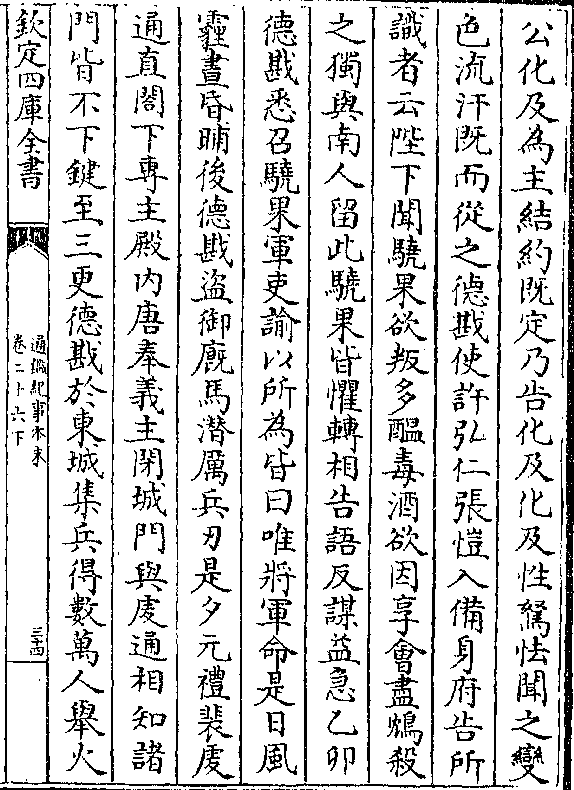 公化及為主結約既定乃告化及化及性駑怯聞之變
色流汗既而從之德戡使許弘仁張愷入備身府告所
識者云陛下聞驍果欲叛多醖毒酒欲因享會盡鴆殺
之獨與南人留此驍果皆懼轉相告語反謀益急乙卯
德戡悉召驍果軍吏諭以所為皆曰唯將軍命是日風
霾晝昏晡後德戡盜御廐馬潛厲兵刃是夕元禮裴䖍
通直閤下專主殿内唐奉義主閉城門與䖍通相知諸
門皆不下鍵至三更德戡於東城集兵得數萬人舉火
欽定四庫全書
通鑑紀事本末
卷二十六下
三十四